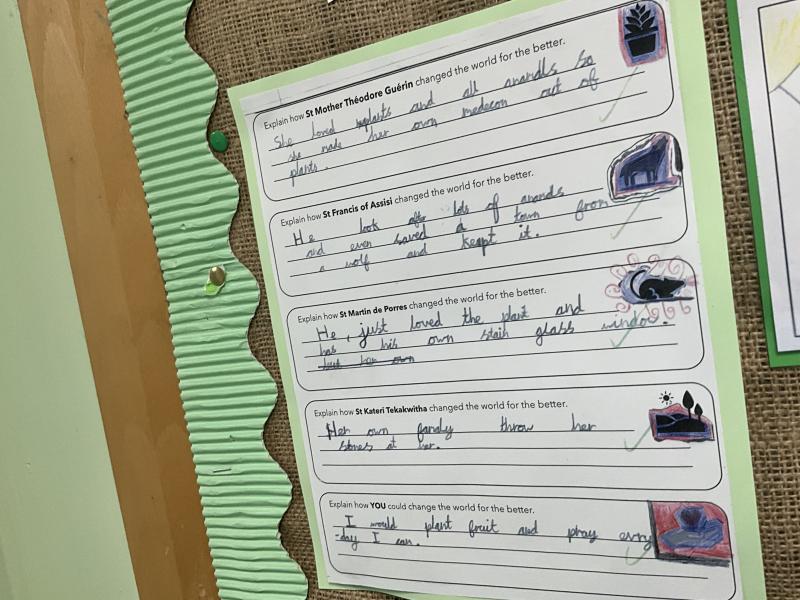 Explain how St Mother Théodore Guérin changed the world for the better.
She loved plants and all anandls so
she made her own medecon out of
plants.
Explain how St Francis of Assisi changed the world for the better.
He look afte lots of anands
and even saved a town from
a wolf and keapt it.
Explain how St Martin de Porres changed the world for the better.
He, just loved the plant and
has his own stain glass window.
Explain how St Kateri Tekakwitha changed the world for the better.
Her own famly throw her
stones at her.
Explain how YOU could change the world for the better.
I would plant fruit and pray evry
-day I can.